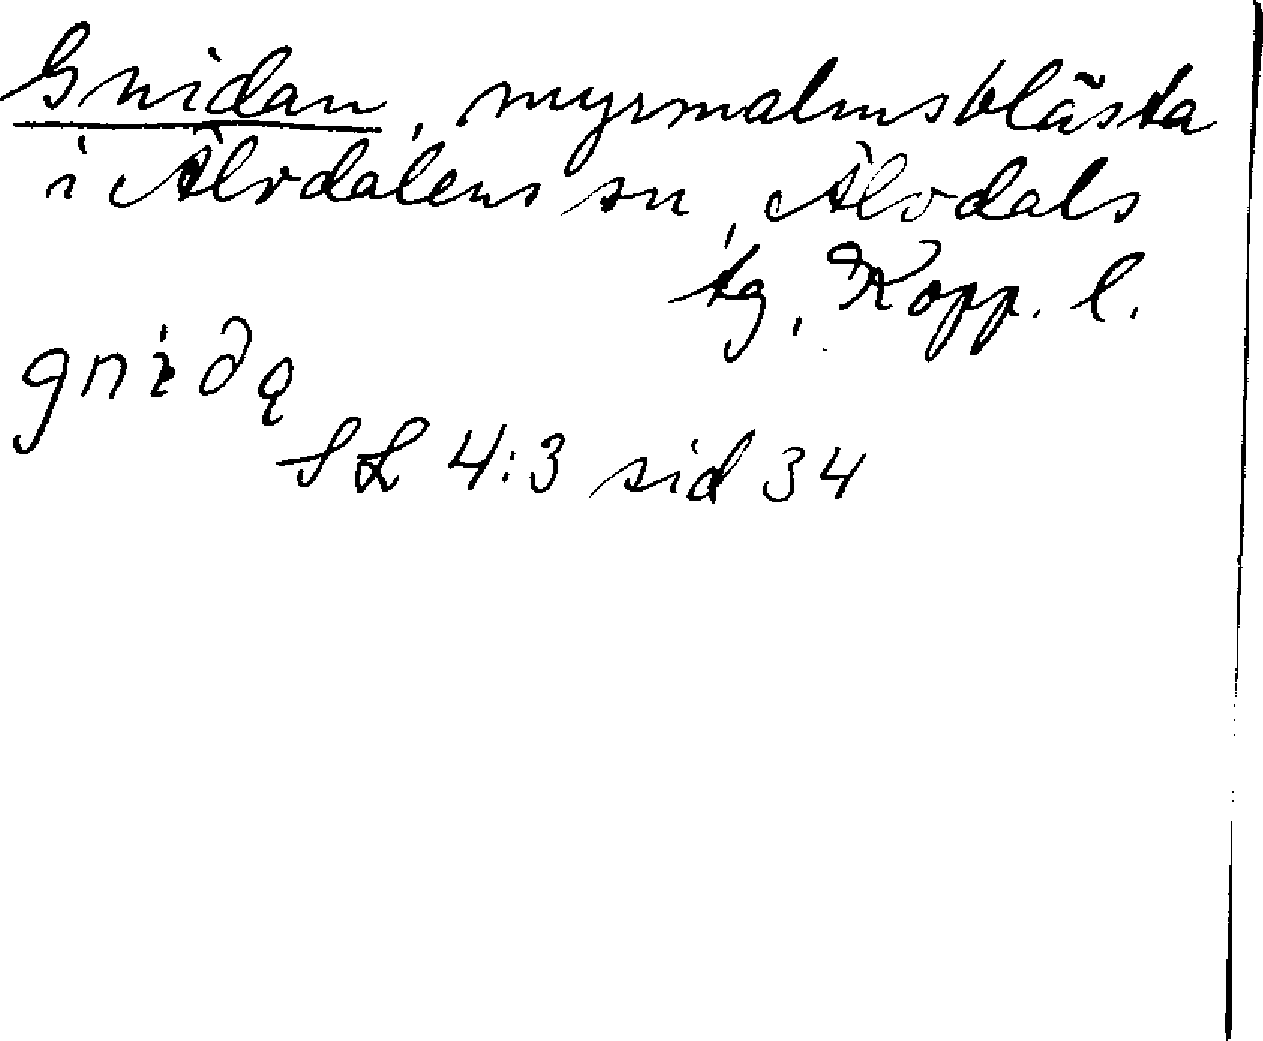 Gnidan, myrmalmsblästa
i Älvdalens sn, Älvdals
tg, Kopp. l.
gniðą
SL 4:3 sid 34